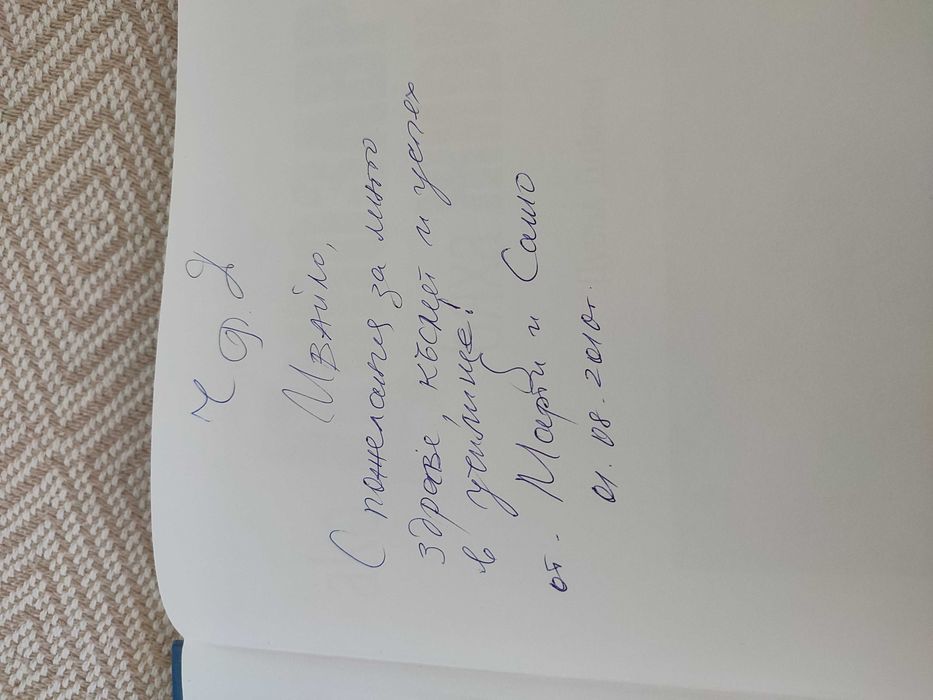 Ч Ф Д
Ивайло,
С пожелания за много
здраве, късмет и успех
в училище!
от. Марти и Сашо
01.08.2010г.